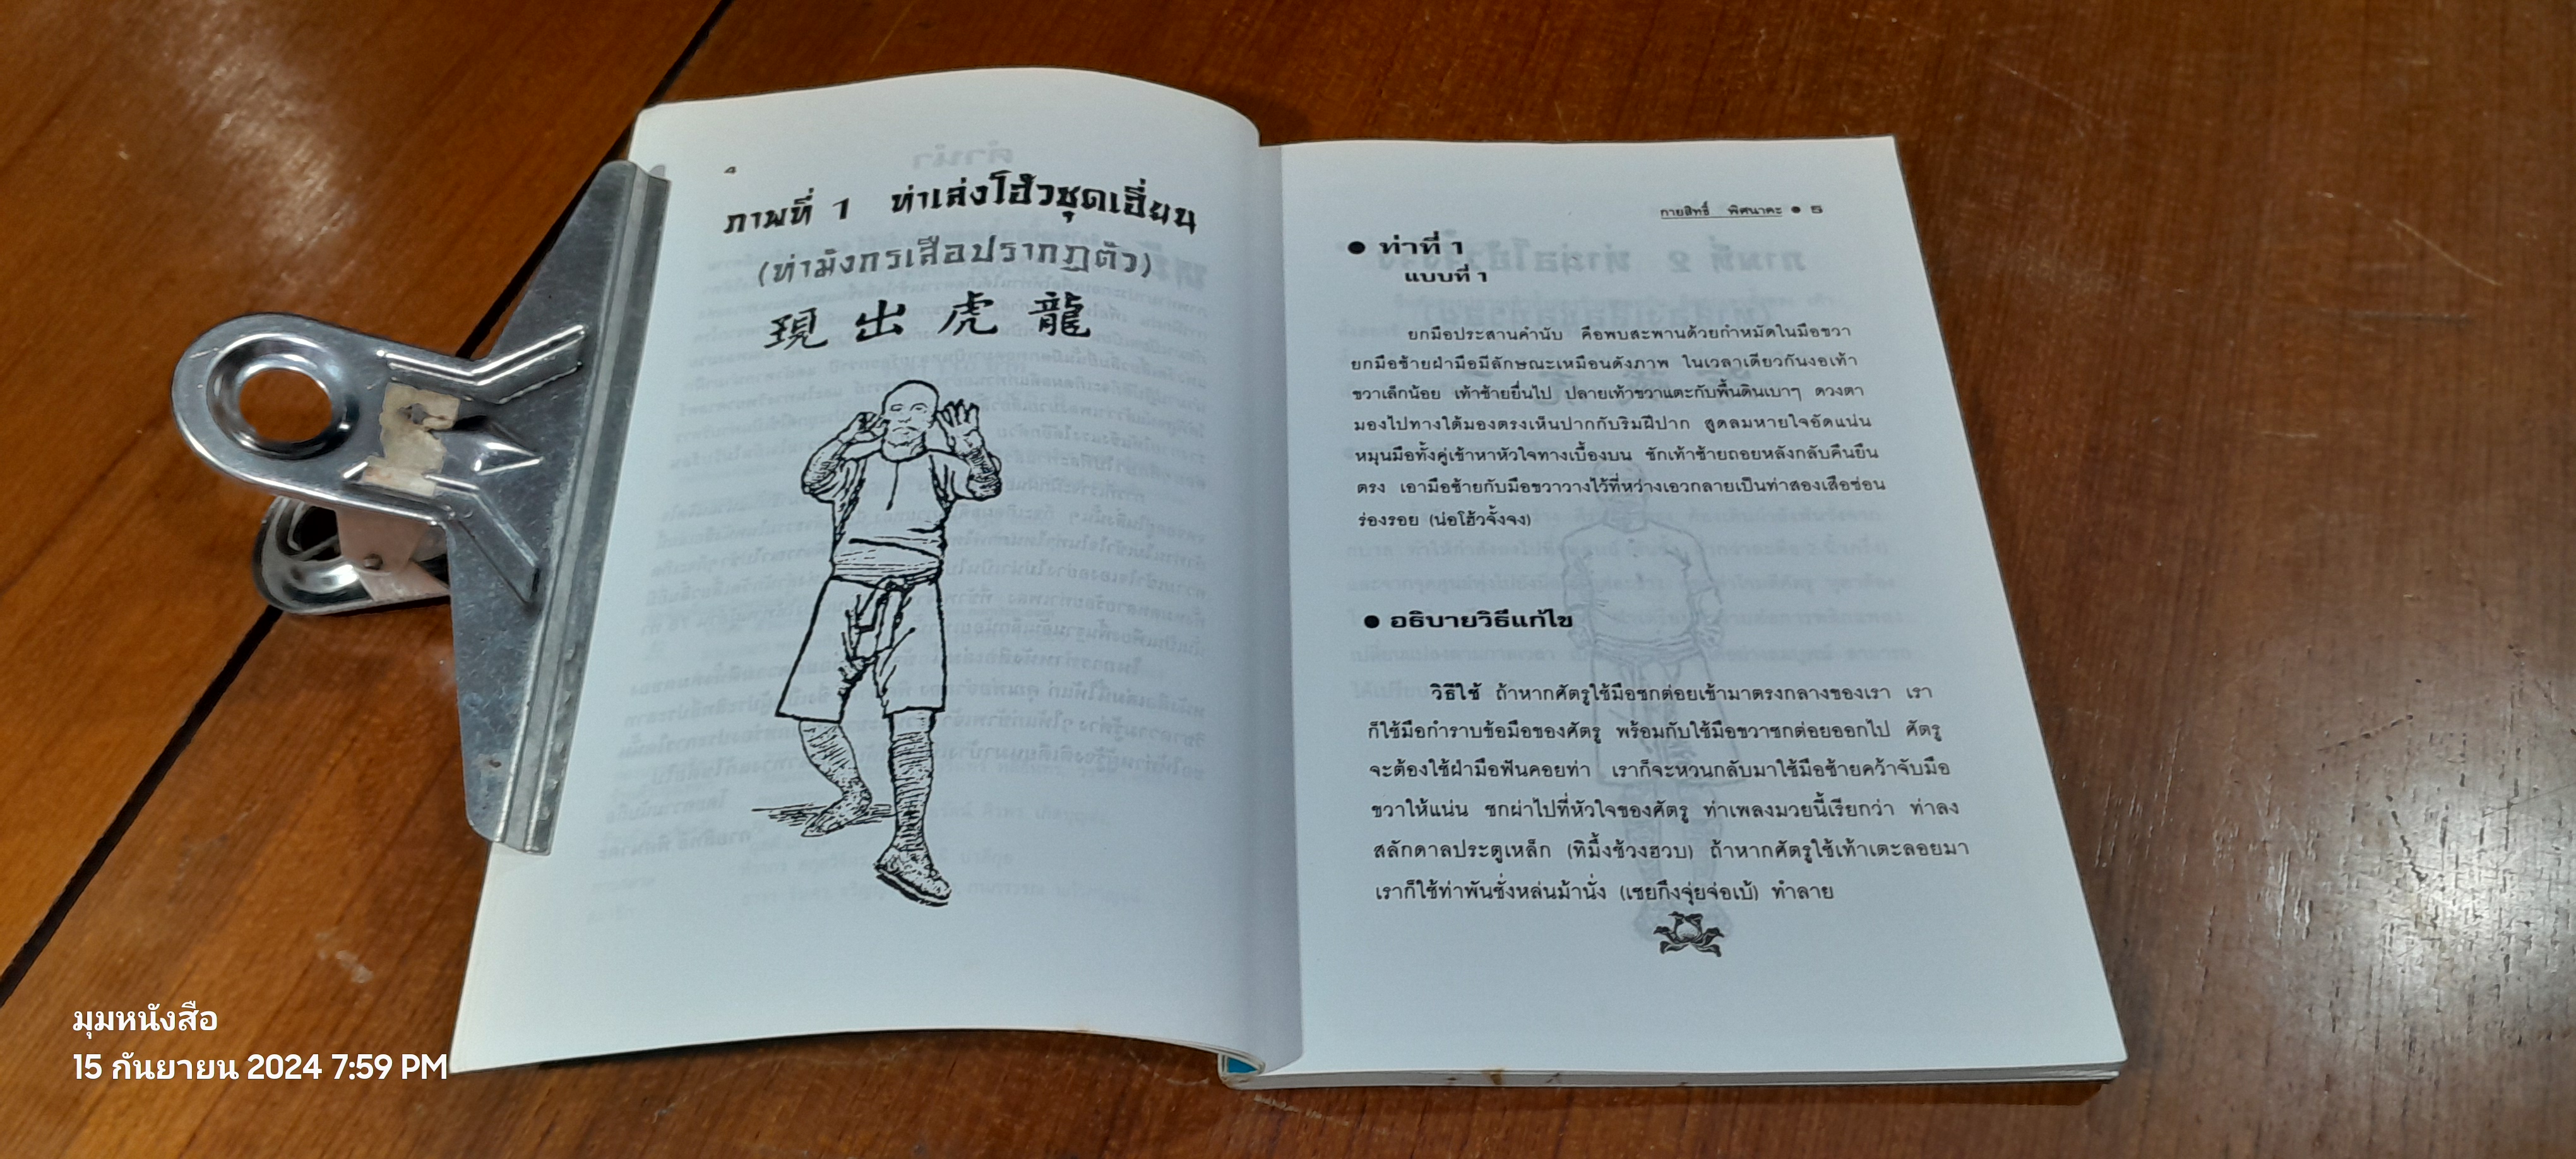 4
ภาพที่ 1 ท่าเล่งโฮ้วชุดเฮี่ยน
(ท่ามังกรเสือปรากฏตัว)
現出虎龍
กายสิทธิ์ พิศนาคะ ● 5
● ท่าที่ 1
แบบที่ 1
ยกมือประสานคำนับ คือพบสะพานด้วยกำหมัดในมือขวา
ยกมือซ้ายฝ่ามือมีลักษณะเหมือนดังภาพ ในเวลาเดียวกันงอเท้า
ขวาเล็กน้อย เท้าซ้ายยื่นไป ปลายเท้าขวาแตะกับพื้นดินเบาๆ ดวงตา
มองไปทางใต้มองตรงเห็นปากกับริมฝีปาก สูดลมหายใจอัดแน่น
หมุนมือทั้งคู่เข้าหาหัวใจทางเบื้องบน ชักเท้าซ้ายถอยหลังกลับคืนยืน
ตรง เอามือซ้ายกับมือขวาวางไว้ที่หว่างเอวกลายเป็นท่าสองเสือซ่อน
ร่องรอย (น่อโฮ้วจั้งจง)
● อธิบายวิธีแก้ไข
วิธีใช้ ถ้าหากศัตรูใช้มือชกต่อยเข้ามาตรงกลางของเรา เรา
ก็ใช้มือกำราบข้อมือของศัตรู พร้อมกับใช้มือขวาชกต่อยออกไป ศัตรู
จะต้องใช้ฝ่ามือฟันคอยท่า เราก็จะหวนกลับมาใช้มือซ้ายคว้าจับมือ
ขวาให้แน่น ชกผ่าไปที่หัวใจของศัตรู ท่าเพลงมวยนี้เรียกว่า ท่าลง
สลักดาลประตูเหล็ก (ทิมึ้งช้วงฮวบ) ถ้าหากศัตรูใช้เท้าเตะลอยมา
เราก็ใช้ท่าพันชั่งหล่นม้านั่ง (เชยกึงจุ่ยจ่อเบ้) ทำลาย
มุมหนังสือ
15 กันยายน 2024 7:59 PM